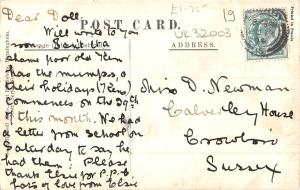 Dear Doll
£1-75
19
POST CARD.
Will write to you
UK32003
soon Isn't the
ADDRESS.
shame poor old Ken
has the mumps, &
their holidays (Ken)
Commences on the 29th
of this month. We had
a letter from School on
Saturday to say he
had them. Please
thanks Elsie for P.P.C.
Lots of love from Elsie
Miss D. Newman
Calverley House
Crowboro
Sussex